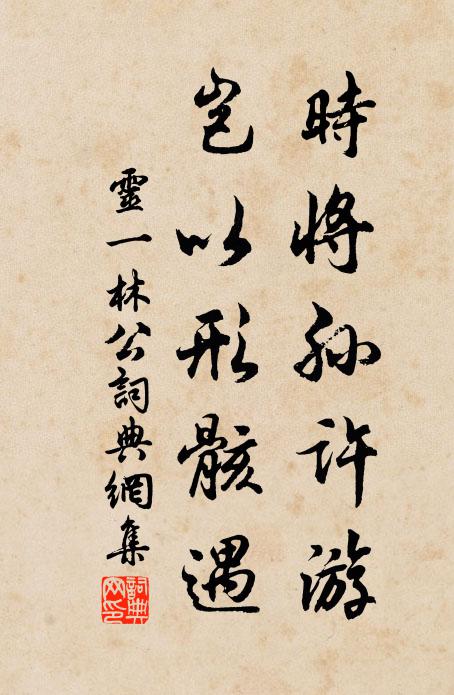 時將孫許游
豈以形骸遇
靈一林公詞典網集
詞典